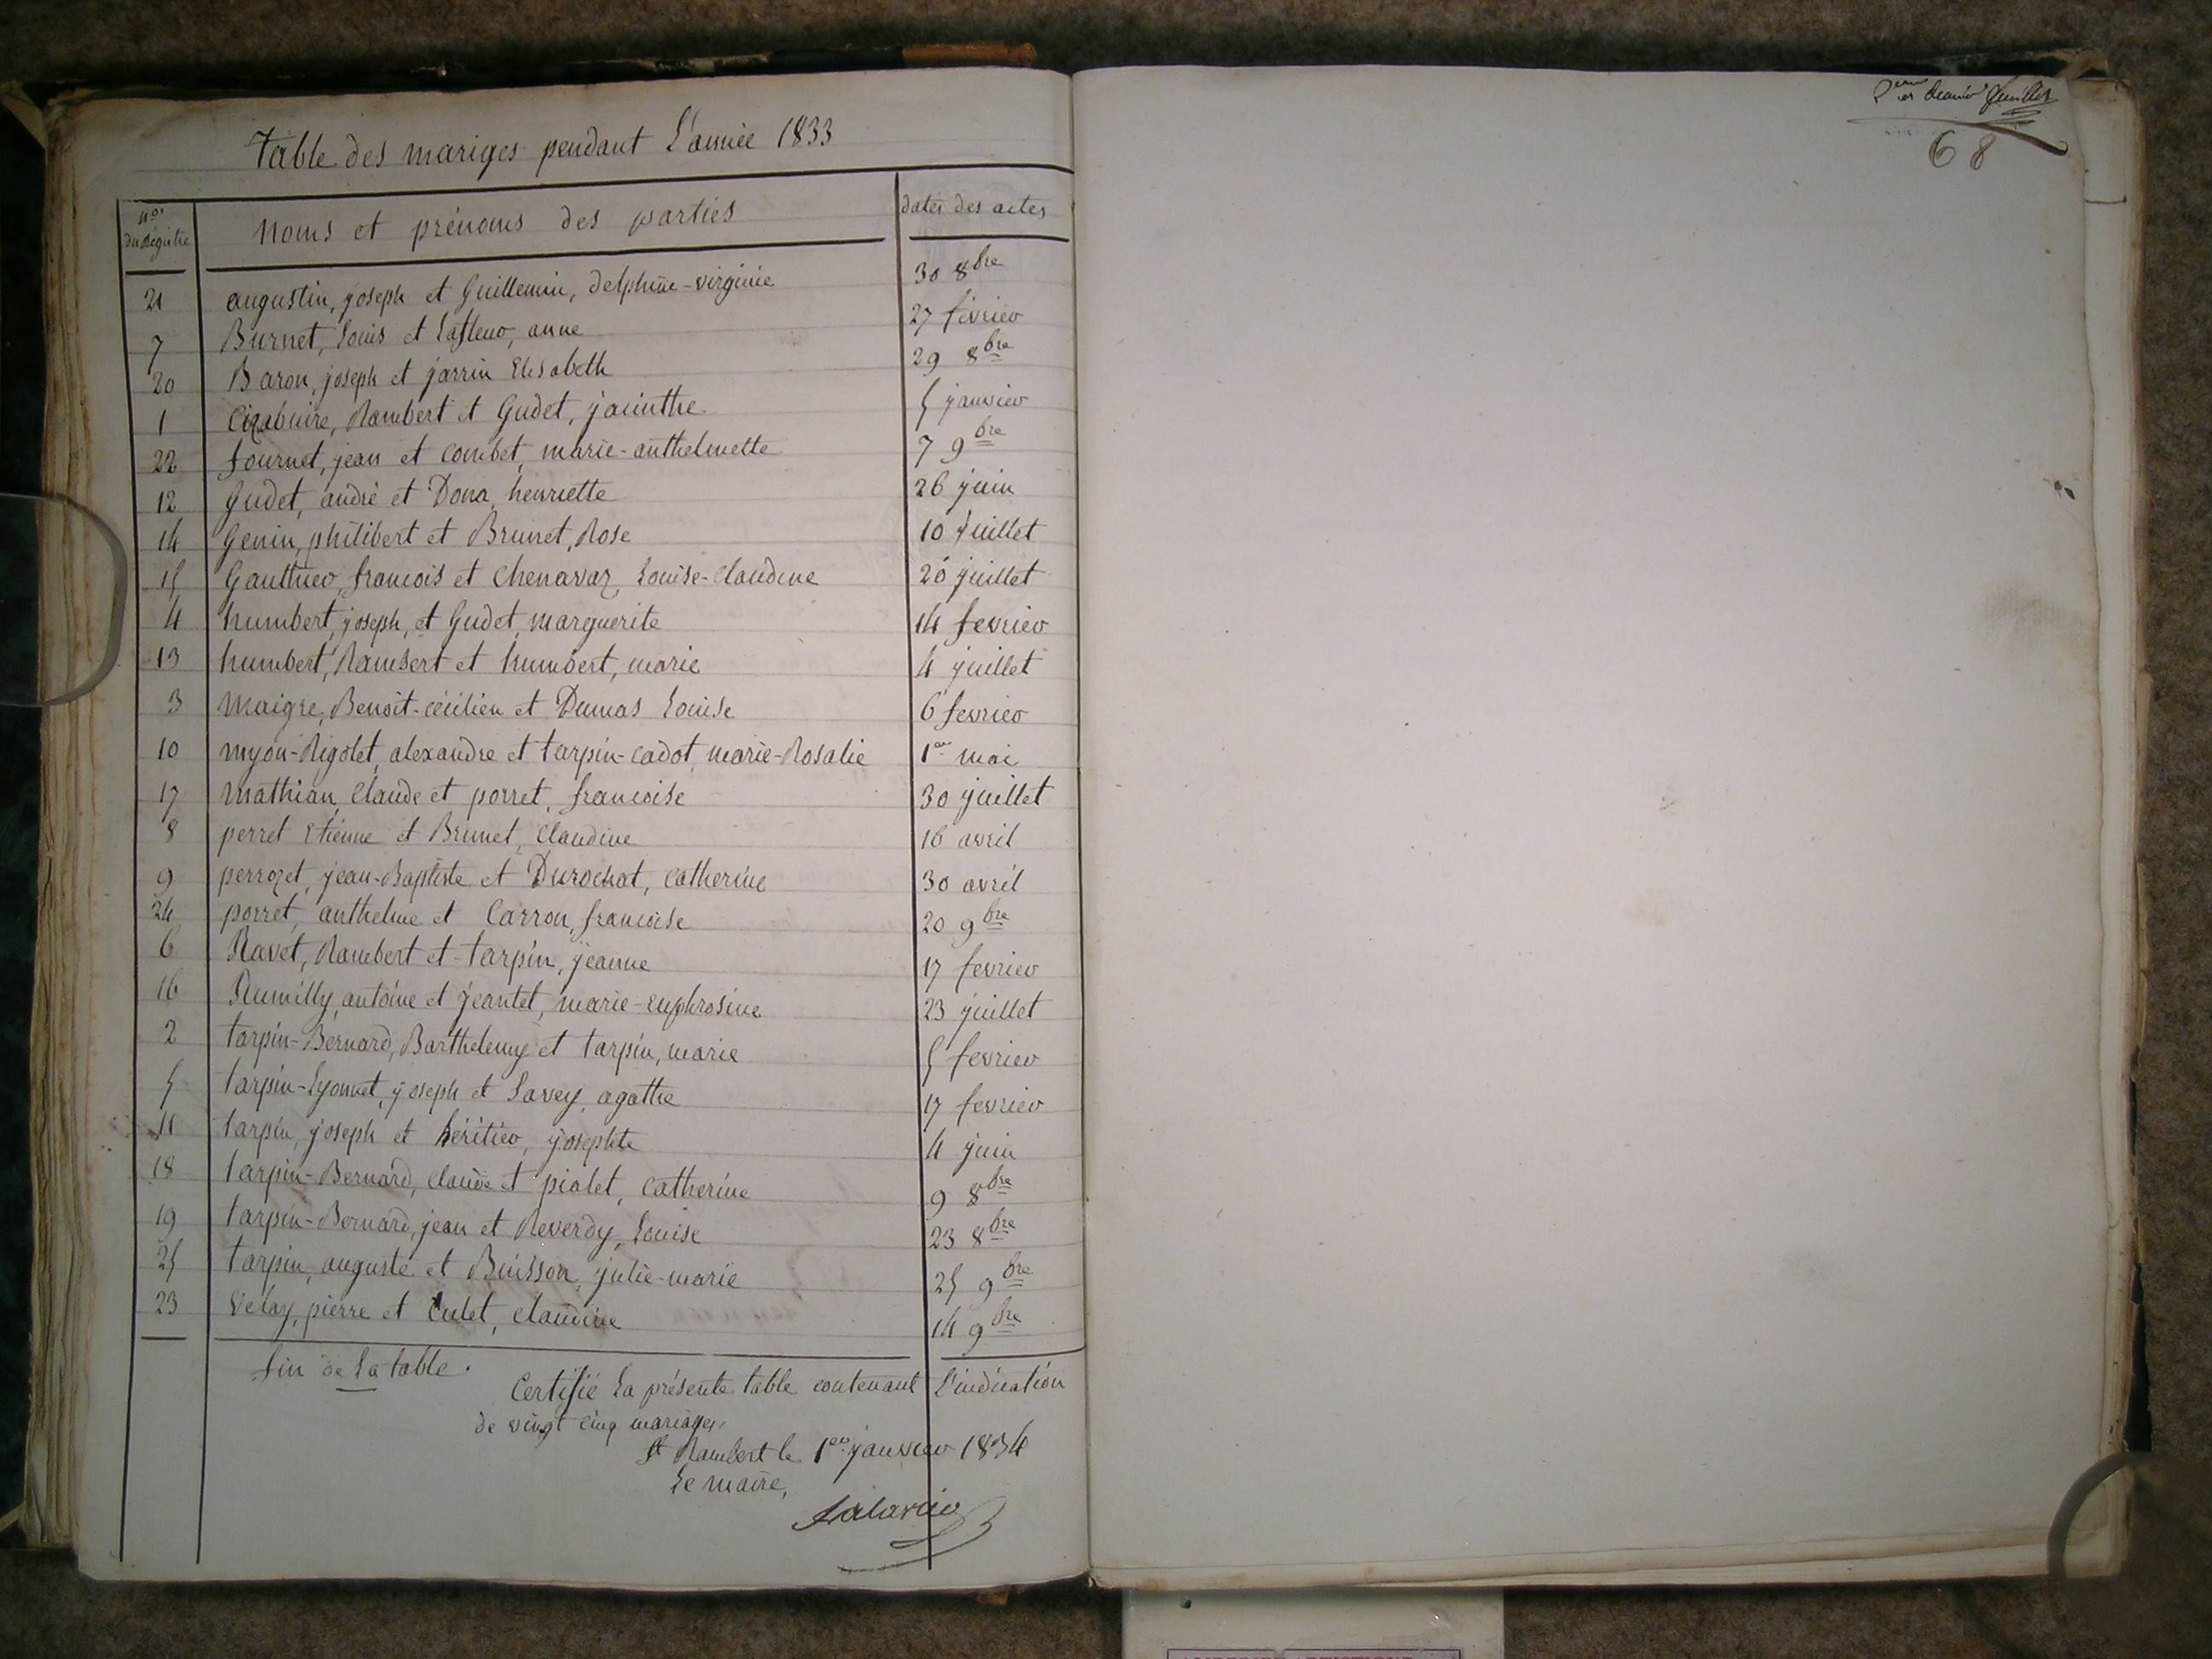 Table des mariges pendant l'année 1833
nos du régistre noms et prénoms des parties dates des actes
21 augustin, joseph et Guillemin, delphine-virginie 30 8bre
7 Burnet, Louis et Lafleur, anne 27 février
20 Baron, joseph et jarrin Elisabeth 29 8bre
1 Rambert et Gudet, jacinthe 5 janvier
22 fournet, jean et combet, marie-anthelmette 7 9bre
12 Gudet, andré et Dona, henriette 26 juin
14 Genin, philibert et Brunet, Rose 10 juillet
15 Gauthier, francois et Chenavaz, Louise-Claudine 20 juillet
4 humbert, joseph, et Gudet, marguerite 14 fevrier
13 humbert, Rambert et humbert, marie 4 juillet
3 Maigre, Benoit-cécilien et Dumas Louise 6 fevrier
10 myon-Rigolet, alexandre et tarpin-cadot, marie-Rosalie 1er mai
17 Mathian, Claude et porret, francoise 30 juillet
8 perret Etienne et Brunet, Claudine 16 avril
9 perrozet, jean-Baptiste et Durochat, Catherine 30 avril
24 porret, anthelme et Carron, francoise 20 9bre
6 Ravet, Rambert et tarpin, jeanne 17 fevrier
16 Rumilly, antoine et jeantet, marie-euphrosine 23 juillet
2 tarpin-Bernard, Barthelemy et tarpin, marie 5 fevrier
5 tarpin-Lyonnet, joseph et Savey, agathe 17 fevrier
11 tarpin, joseph et héritier, josephte 4 juin
18 tarpin-Bernard, Claude et piolet, Catherine 9 8bre
19 tarpin-Bernard, jean et Reverdy, Louise 23 8bre
25 tarpin, auguste et Buisson, julie-marie 25 9bre
23 Velay, pierre et Culet, Claudine 14 9bre
fin de la table.
Certifié la présente table contenant l'indication
de vingt cinq mariages.
St Rambert le 1er janvier 1834
Le maire,
et dernier feuillet
68